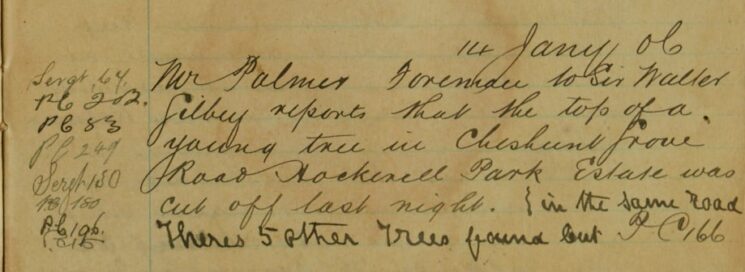 14 Jany 06
Sergt 64. Mr Palmer Foreman to Sir Walter
PC 202. Gilbey reports that the top of a
PC 83 young tree in Cheshunt Grove
PC 249 Road Hockerell Park Estate was
Sergt 180
PC 180 cut off last night. { in the same road
PC 196. Theres 5 other Trees found cut PC 166